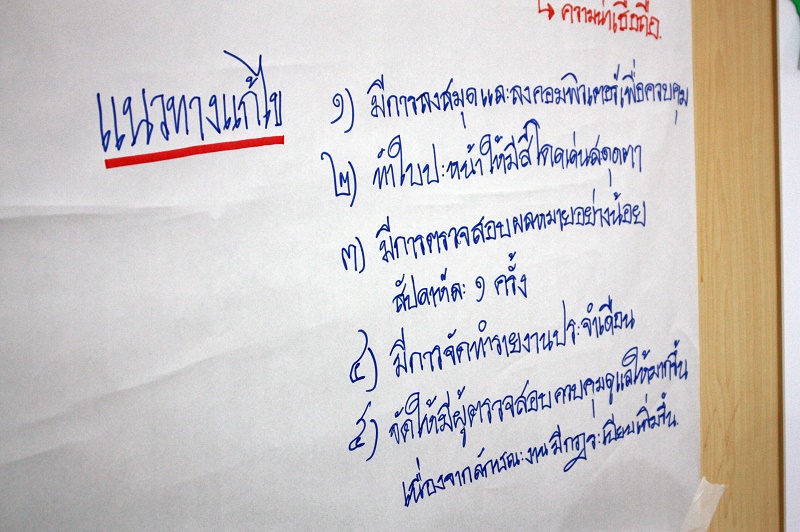 ↳ ความน่าเชื่อถือ.
แนวทางแก้ไข
๑) มีการลงสมุดและลงคอมพิวเตอร์เพื่อควบคุม
๒) ทำใบปะหน้าให้มีสีโดดเด่นสดุดตา
๓) มีการตรวจสอบผลหมายอย่างน้อย
สัปดาห์ละ ๑ ครั้ง
๔) มีการจัดทำรายงานประจำเดือน
๕) จัดให้มีผู้ตรวจสอบควบคุมดูแลให้มากขึ้น
เนื่องจากลักษณะงานมีกฎระเบียบเพิ่มขึ้น.